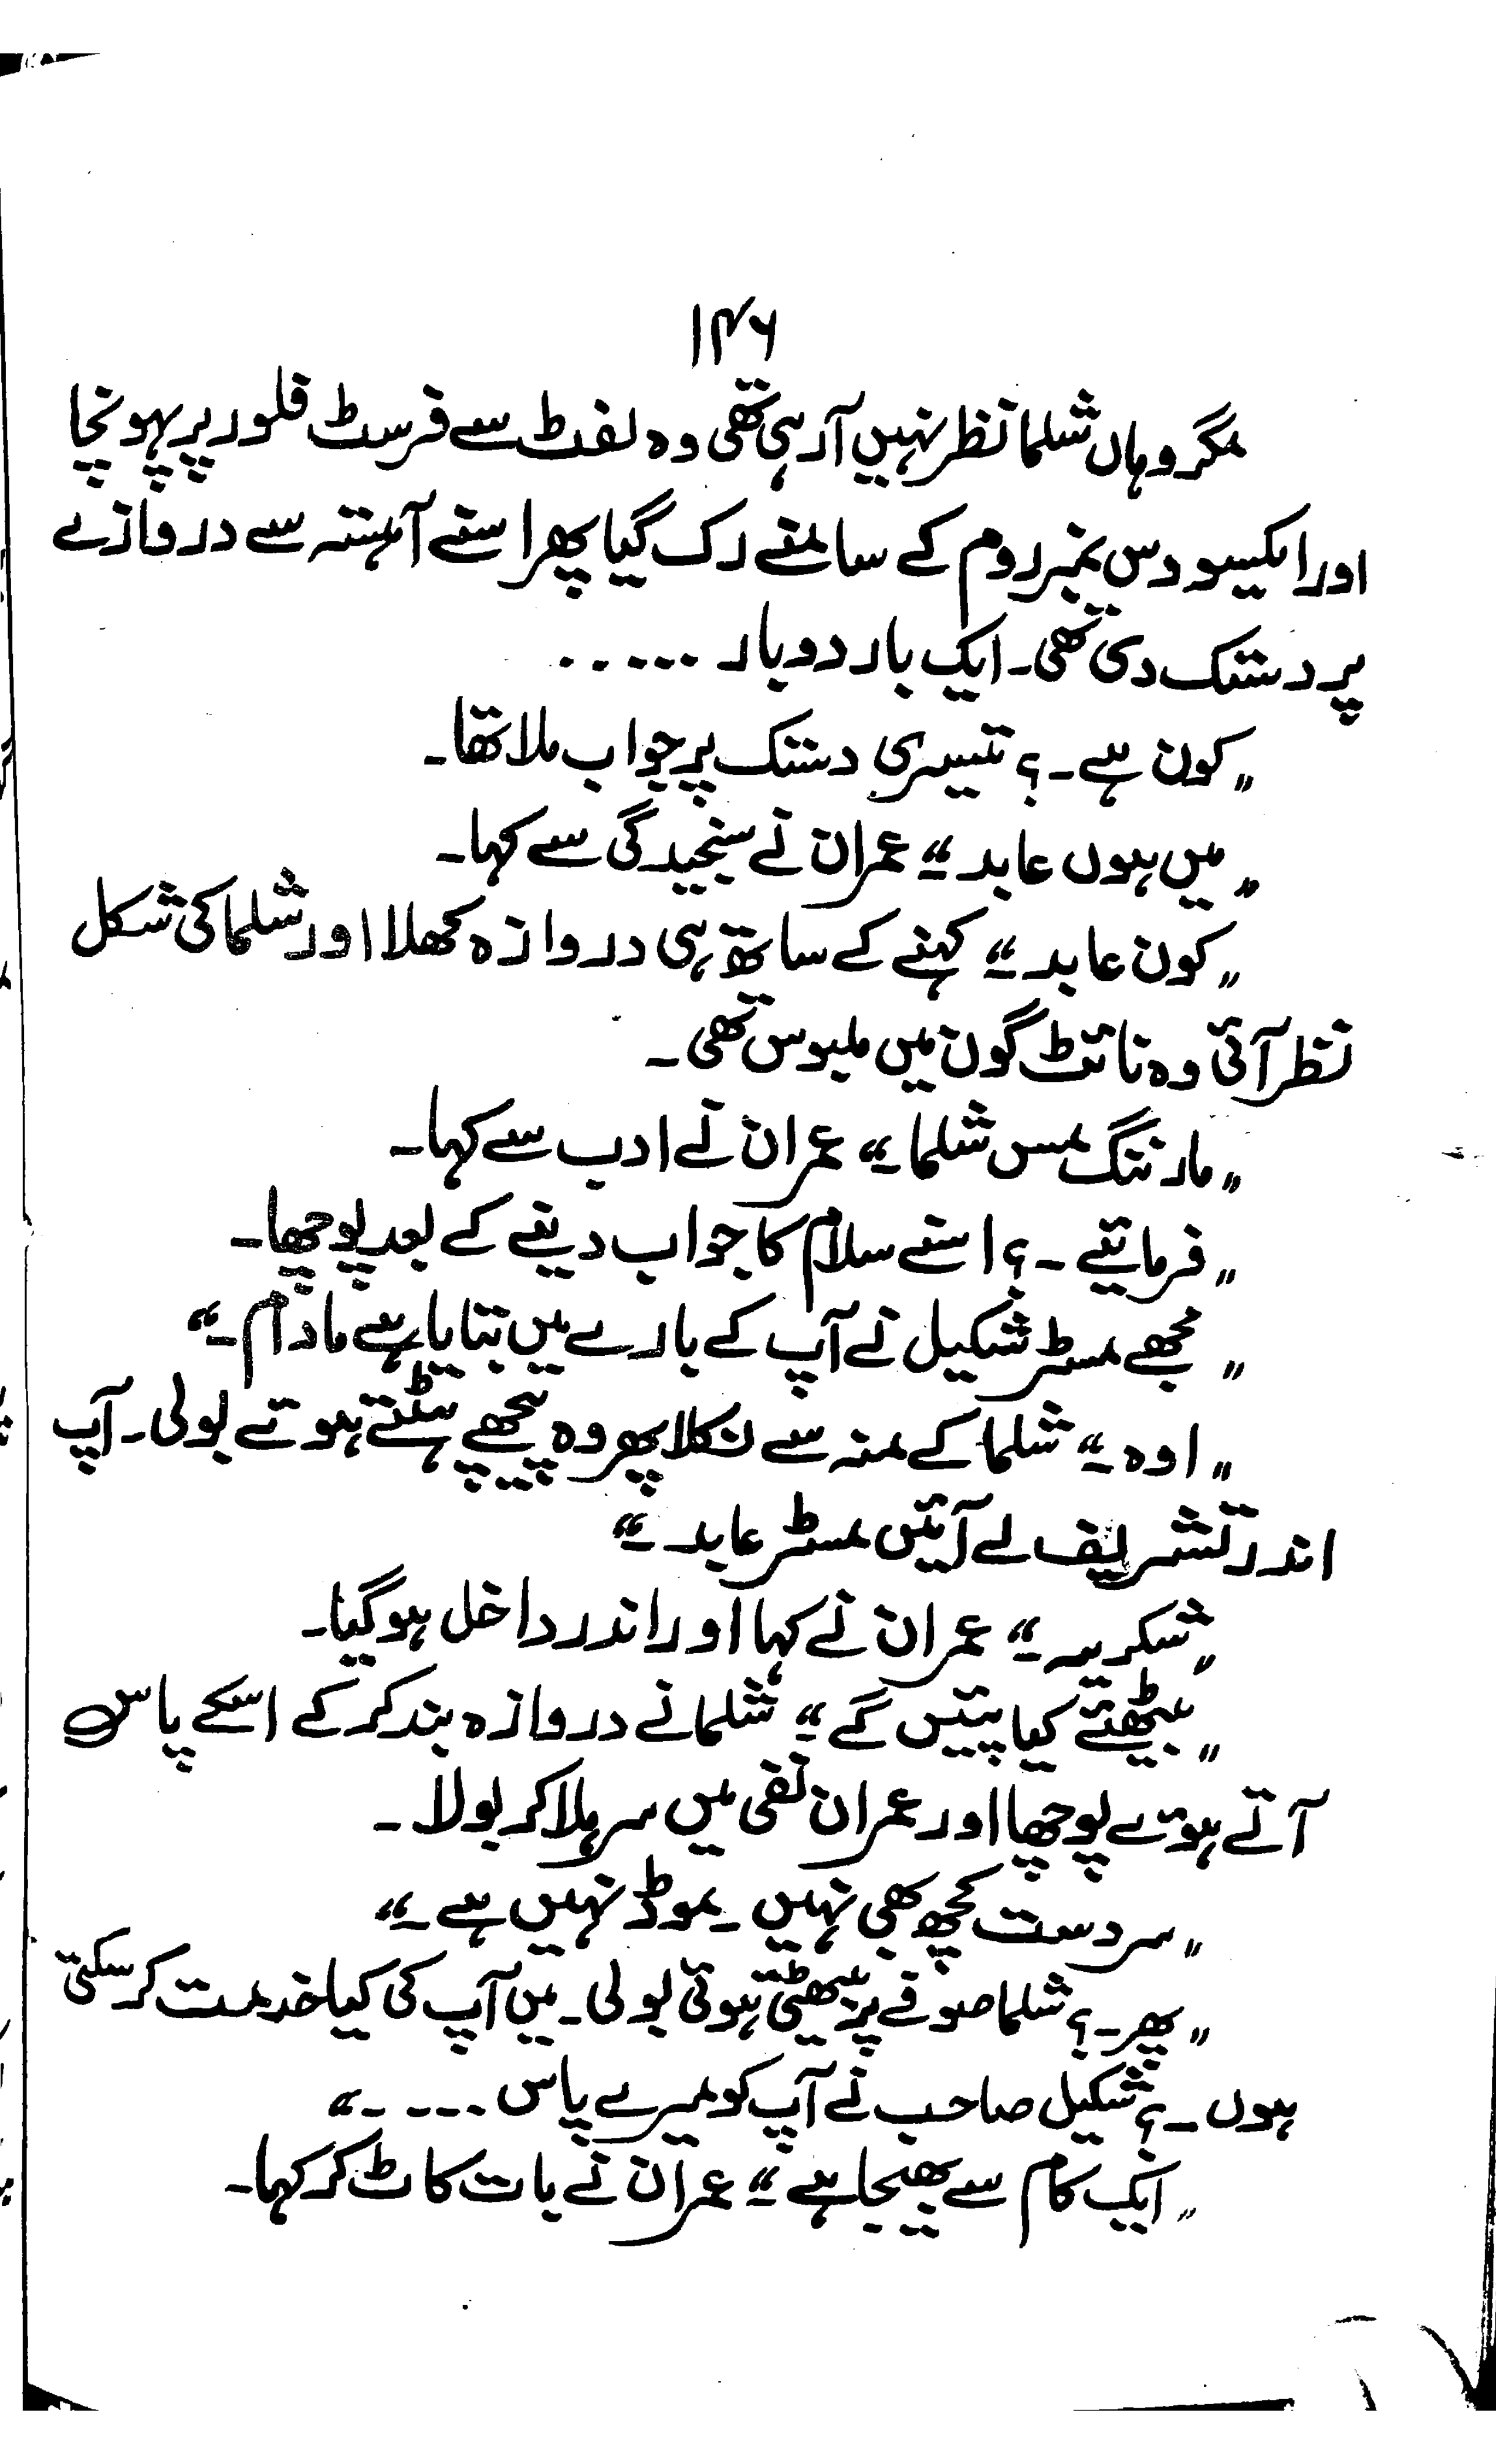 ۱۴۶
مگر وہاں شلما نظر نہیں آرہی تھی وہ لفٹ سے فرسٹ فلور پر پہونچا
اور ایکسو دس نمبر روم کے سامنے رک گیا پھر اسنے آہستہ سے دروازے
پر دستک دی تھی۔ ایک بار دو بار ......
"کون ہے۔؟ تیسری دستک پر جواب ملا تھا۔
"میں ہوں عابد۔" عمران نے سنجیدگی سے کہا۔
"کون عابد۔" کہنے کے ساتھ ہی دروازہ کھلا اور شلما کی شکل
نظر آئی وہ نائٹ گون میں ملبوس تھی۔
"مارننگ مس شلما۔" عمران نے ادب سے کہا۔
"فرمائیے۔؟ اسنے سلام کا جواب دینے کے بعد پوچھا۔
"مجھے مسٹر شکیل نے آپ کے بارے میں بتایا ہے مادام۔"
"اوہ۔" شلما کے منہ سے نکلا پھر وہ پیچھے ہٹتے ہوئے بولی۔ آپ
اندر تشریف لے آئیں مسٹر عابد۔"
"شکریہ۔" عمران نے کہا اور اندر داخل ہوگیا۔
"بیٹھئے کیا پئیں گے۔" شلما نے دروازہ بند کر کے اسکے پاس
آتے ہوئے پوچھا اور عمران نفی میں سر ہلا کر بولا۔
"سردست کچھ بھی نہیں۔ موڈ نہیں ہے۔"
"پھر۔؟ شلما صوفے پر بیٹھتی ہوئی بولی۔ میں آپ کی کیا خدمت کرسکتی
ہوں۔؟ شکیل صاحب نے آپ کو میرے پاس ....."
"ایک کام سے بھیجا ہے۔" عمران نے بات کاٹ کر کہا۔